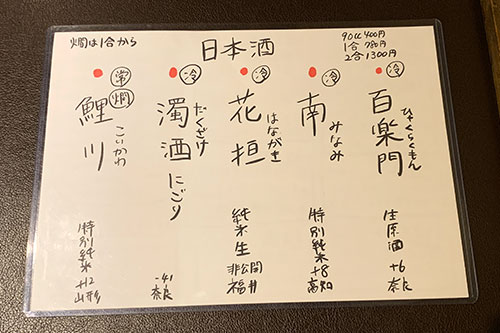 日本酒
燗は1合から
90cc 400円
1合 780円
2合 1300円
冷
百楽門
ひゃくらくもん
生原酒
+6
奈良
冷
南
みなみ
特別純米
+8
高知
冷
花垣
はながき
純米生
非公開
福井
冷
濁酒にごり
だくざけ
-41
奈良
常
燗
鯉川
こいかわ
特別純米
+12
山形